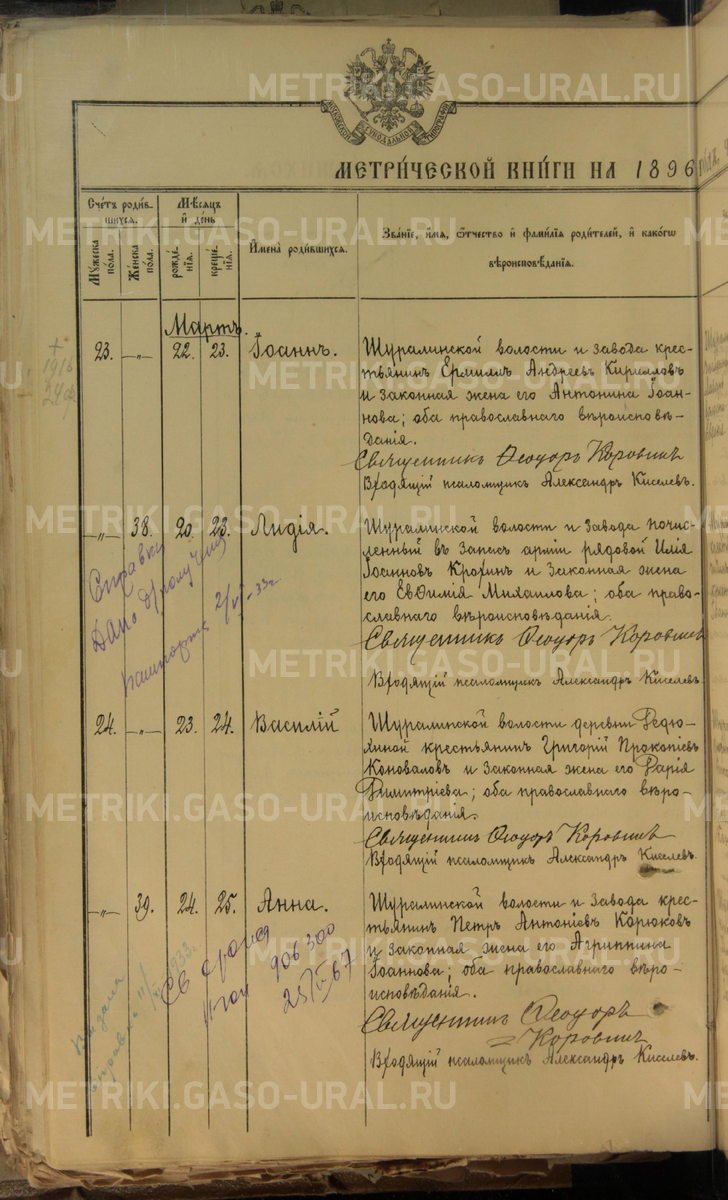 METRIKI.GASO-URAL.RU
МОСКОВСКОЙ СѴНОДАЛЬНОЙ ТИПОГРАФІИ
МЕТРИ́ЧЕСКОЙ КНИ́ГИ НА 1896
Сче́тъ роди́в-
шихся.
Мꙋ́жеска по́ла.
Же́нска по́ла.
Мѣ́сяцъ
и҆ де́нь
рожде́нїѧ.
креще́нїѧ.
И҆мена̀ роди́вшихся.
Зва́нїе, и҆́мѧ, ѻ҆́тчество и҆ фами́лїѧ роди́телей, и҆ како́гѡ
вѣроисповѣ́данїѧ.
Мартъ.
23. —„— 22. 23. Іоаннъ.
Шуралинской волости и завода крес-
тьянинъ Ермилъ Андреевъ Кирилловъ
и законная жена его Антонина Іоан-
нова; оба православнаго вѣроисповѣ-
данія.
Священникъ Ѳеодоръ Коровинъ
Входящій псаломщикъ Александръ Киселевъ.
+
1916
—„— 38. 20. 23. Лидія.
Шуралинской волости и завода почис-
ленный въ запасъ арміи рядовой Илія
Іоанновъ Крохинъ и законная жена
его Евѳимія Михаилова; оба право-
славнаго вѣроисповѣданія.
Священникъ Ѳеодоръ Коровинъ
Входящій псаломщикъ Александръ Киселевъ.
Справку
Дано д/получения
пашпорта 2/VI-33г
24. —„— 23. 24. Василій
Шуралинской волости деревни Федю-
ниной крестьянинъ Григорій Прокопіевъ
Коноваловъ и законная жена его Дарія
Димитріева; оба православнаго вѣро-
исповѣданія.
Священникъ Ѳеодоръ Коровинъ
Входящій псаломщикъ Александръ Киселевъ.
—„— 39. 24. 25. Анна.
Шуралинской волости и завода крес-
тьянинъ Петръ Антоніевъ Карюковъ
и законная жена его Агриппина
Іоаннова; оба православнаго вѣро-
исповѣданія.
Священникъ Ѳеодоръ
Коровинъ
Входящій псаломщикъ Александръ Киселевъ.
906300
Выдана
справка